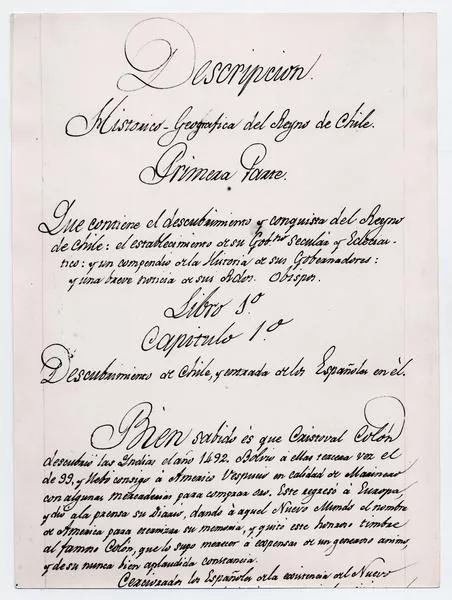 Descripcion.
Historico-Geografica del Reyno de Chile.
Primera Parte.
Que contiene el descubrimiento y conquista del Reyno
de Chile: el establecimiento de su Gobno secular y Eclecias-
tico: y un compendio de la Historia de sus Gobernadores:
y una breve noticia de sus Rdos. Obispos.
Libro 1º
Capitulo 1º
Descubrimiento de Chile, y entrada de los Españoles en èl.
Bien sabido és que Cristoval Colón
descubrió las Yndias el año 1492. Bolvio á ellas tercera vez el
de 99, y llebo consigo à Americo Vespucio en calidad de Marinero
con algunas mercadurias para comprar oro. Este regresó à Europa,
y dió a la prensa su Diario, dando à aquel Nuevo Mundo el nombre
de America para eternizar su memoria, y quitó este honroso timbre
al famoso Colón, que lo supo merecer à expensas de un generoso animo,
y de su nunca bien aplaudida constancia.
Cerciorados los Españoles de la existencia del Nuevo